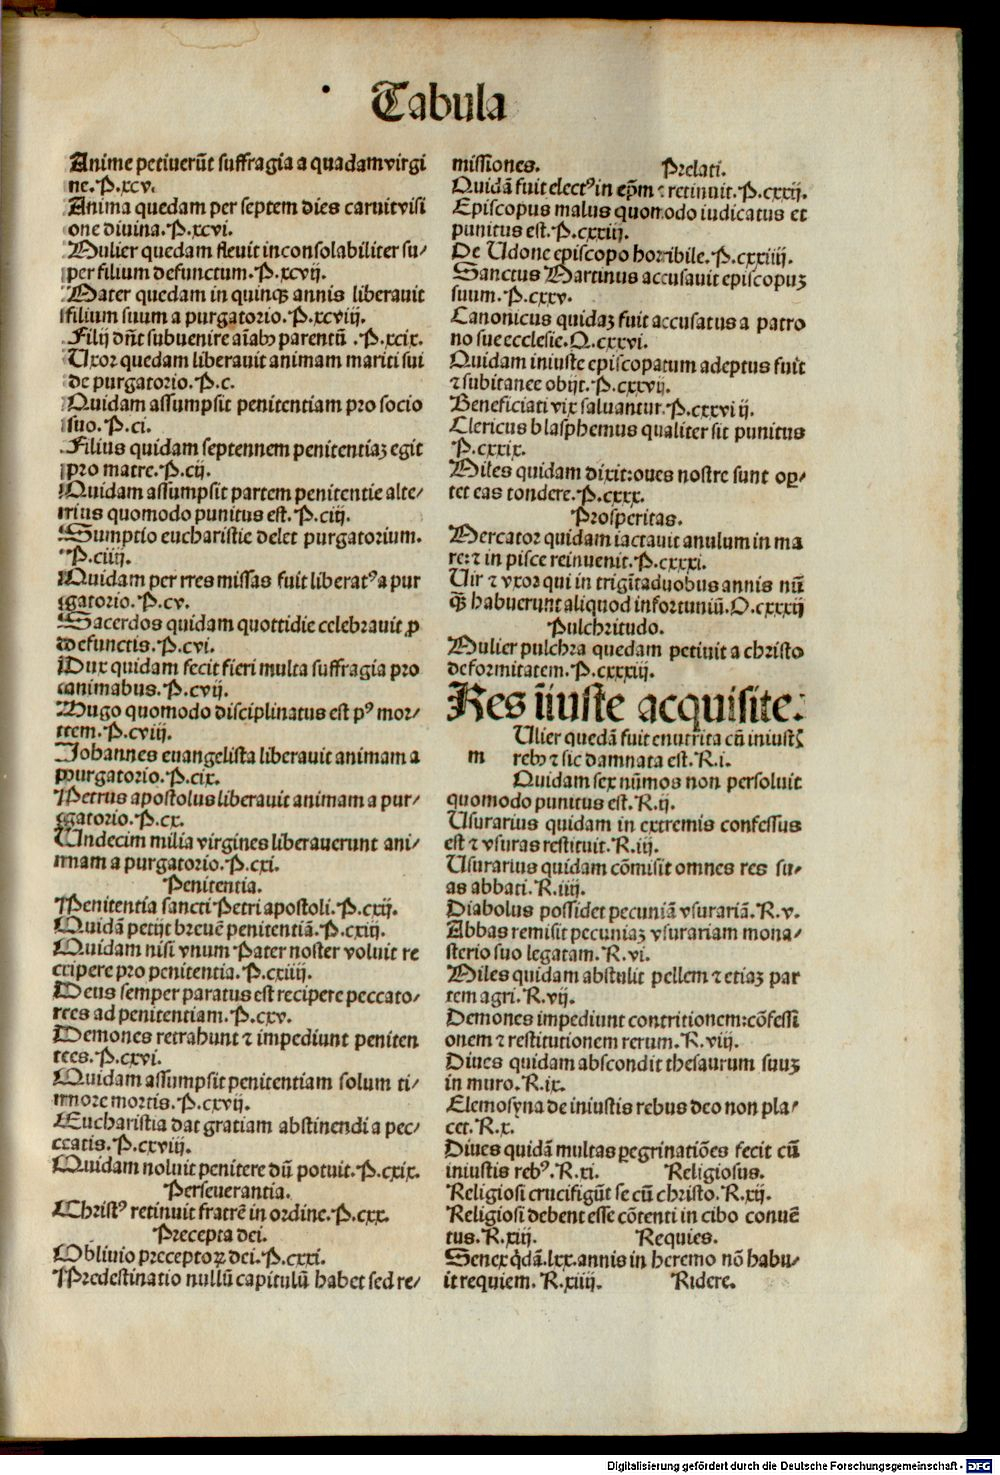 Tabula
Anime petiuerūt suffragia a quadam virgi
ne. P.xcv.
Anima quedam per septem dies caruit visi
one diuina. P.xcvi.
Mulier quedam fleuit inconsolabiliter su/
per filium defunctum. P.xcvij.
Mater quedam in quinqꝫ annis liberauit
filium suum a purgatorio. P.xcviij.
Filij dn̄t subuenire aīabꝰ parentū. P.xcix.
Uxor quedam liberauit animam mariti sui
de purgatorio. P.c.
Quidam assumpsit penitentiam pro socio
suo. P.ci.
Filius quidam septennem penitentiaꝫ egit
pro matre. P.cij.
Quidam assumpsit partem penitentie alte/
rius quomodo punitus est. P.ciij.
Sumptio eucharistie delet purgatorium.
P.ciiij.
Quidam per tres missas fuit liberatꝰ a pur
gatorio. P.cv.
Sacerdos quidam quottidie celebrauit ꝓ
defunctis. P.cvi.
Dux quidam fecit fieri multa suffragia pro
animabus. P.cvij.
Hugo quomodo disciplinatus est pꝰ mor/
tem. P.cviij.
Johannes euangelista liberauit animam a
purgatorio. P.cix.
Petrus apostolus liberauit animam a pur/
gatorio. P.cx.
Undecim milia virgines liberauerunt ani/
mam a purgatorio. P.cxi.
Penitentia.
Penitentia sancti Petri apostoli. P.cxij.
Quidā petijt breuē penitentiā. P.cxiij.
Quidam nisi vnum Pater noster voluit re
cipere pro penitentia. P.cxiiij.
Deus semper paratus est recipere peccato/
res ad penitentiam. P.cxv.
Demones retrahunt ⁊ impediunt peniten
tes. P.cxvi.
Quidam assumpsit penitentiam solum ti/
more mortis. P.cxvij.
Eucharistia dat gratiam abstinendi a pec/
catis. P.cxviij.
Quidam noluit penitere dū potuit. P.cxix.
Perseuerantia.
Christꝰ retinuit fratrē in ordine. P.cxx.
Precepta dei.
Obliuio preceptoꝝ dei. P.cxxi.
Predestinatio nullū capitulū habet sed re/
missiones. Prelati.
Quidā fuit electꝰ in ep̄m ⁊ retinuit. P.cxxij.
Episcopus malus quomodo iudicatus et
punitus est. P.cxxiij.
De Udone episcopo horribile. P.cxxiiij.
Sanctus Martinus accusauit episcopuꝫ
suum. P.cxxv.
Canonicus quidaꝫ fuit accusatus a patro
no sue ecclesie. Q.cxxvi.
Quidam iniuste episcopatum adeptus fuit
⁊ subitanee obijt. P.cxxvij.
Beneficiati vix saluantur. P.cxxviij.
Clericus blasphemus qualiter sit punitus
P.cxxix.
Miles quidam dixit: oues nostre sunt opꝫ/
tet eas tondere. P.cxxx.
Prosperitas.
Mercator quidam iactauit anulum in ma
re: ⁊ in pisce reinuenit. P.cxxxi.
Uir ⁊ vxor qui in trigītaduobus annis nū
qꝫ habuerunt aliquod infortuniū. Q.cxxxij
Pulchritudo.
Mulier pulchra quedam petiuit a christo
deformitatem. P.cxxxiij.
Res īiuste acquisite.
Ulier quedā fuit enutrita cū iniustꝭ
m rebꝰ ⁊ sic damnata est. R.i.
Quidam sex nūmos non persoluit
quomodo punitus est. R.ij.
Usurarius quidam in extremis confessus
est ⁊ vsuras restituit. R.iij.
Usurarius quidam cōmisit omnes res su/
as abbati. R.iiij.
Diabolus possidet pecuniā vsurariā. R.v.
Abbas remisit pecuniaꝫ vsurariam mona/
sterio suo legatam. R.vi.
Miles quidam abstulit pellem ⁊ etiaꝫ par
tem agri. R.vij.
Demones impediunt contritionem: cōfessi
onem ⁊ restitutionem rerum. R.viij.
Diues quidam abscondit thesaurum suuꝫ
in muro. R.ix.
Elemosyna de iniustis rebus deo non pla/
cet. R.x.
Diues quidā multas ꝑegrinatiōes fecit cū
iniustis rebꝰ. R.xi. Religiosus.
Religiosi crucifigūt se cū christo. R.xij.
Religiosi debent esse cōtenti in cibo conuē
tus. R.xiij. Requies.
Senex qdā .lxx. annis in heremo nō habu/
it requiem. R.xiiij. Ridere.
Digitalisierung gefördert durch die Deutsche Forschungsgemeinschaft - DFG